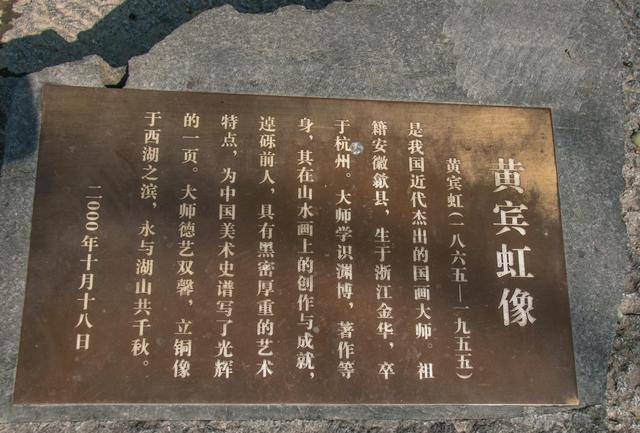 黄宾虹像
黄宾虹(一八六五—一九五五)
是我国近代杰出的国画大师。祖
籍安徽歙县，生于浙江金华，卒
于杭州。大师学识渊博，著作等
身，其在山水画上的创作与成就，
逴砾前人，具有黑密厚重的艺术
特点，为中国美术史谱写了光辉
的一页。大师德艺双馨，立铜像
于西湖之滨，永与湖山共千秋。
二000年十月十八日